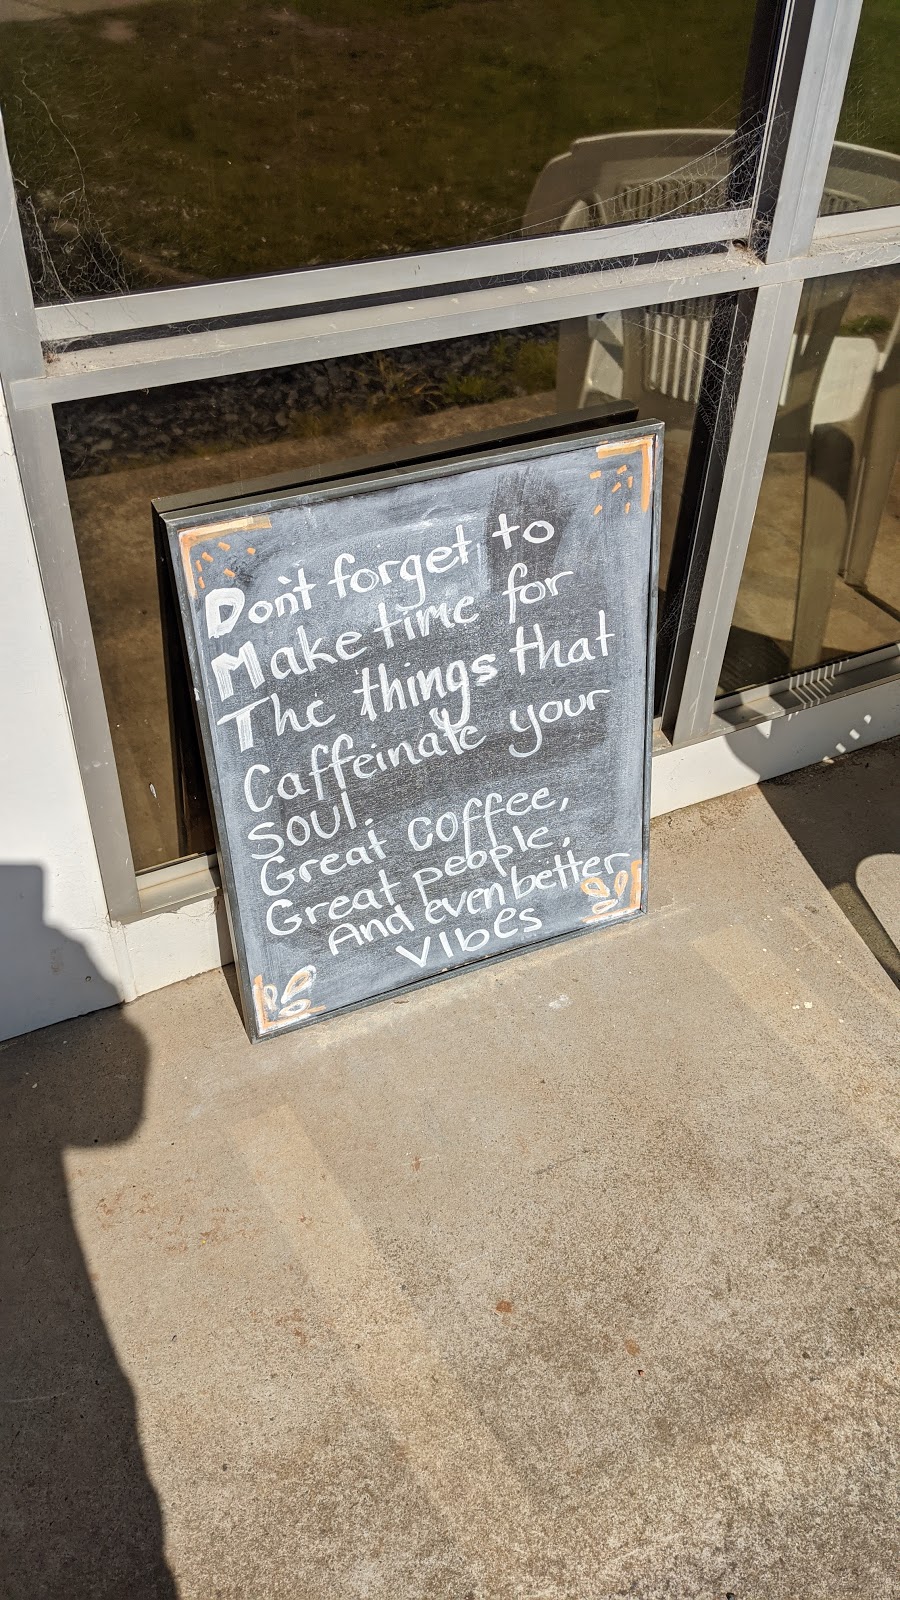 Don't forget, to
Make time for
The things that
Caffeinate your
soul.
Great coffee,
Great people,
And even better
Vibes